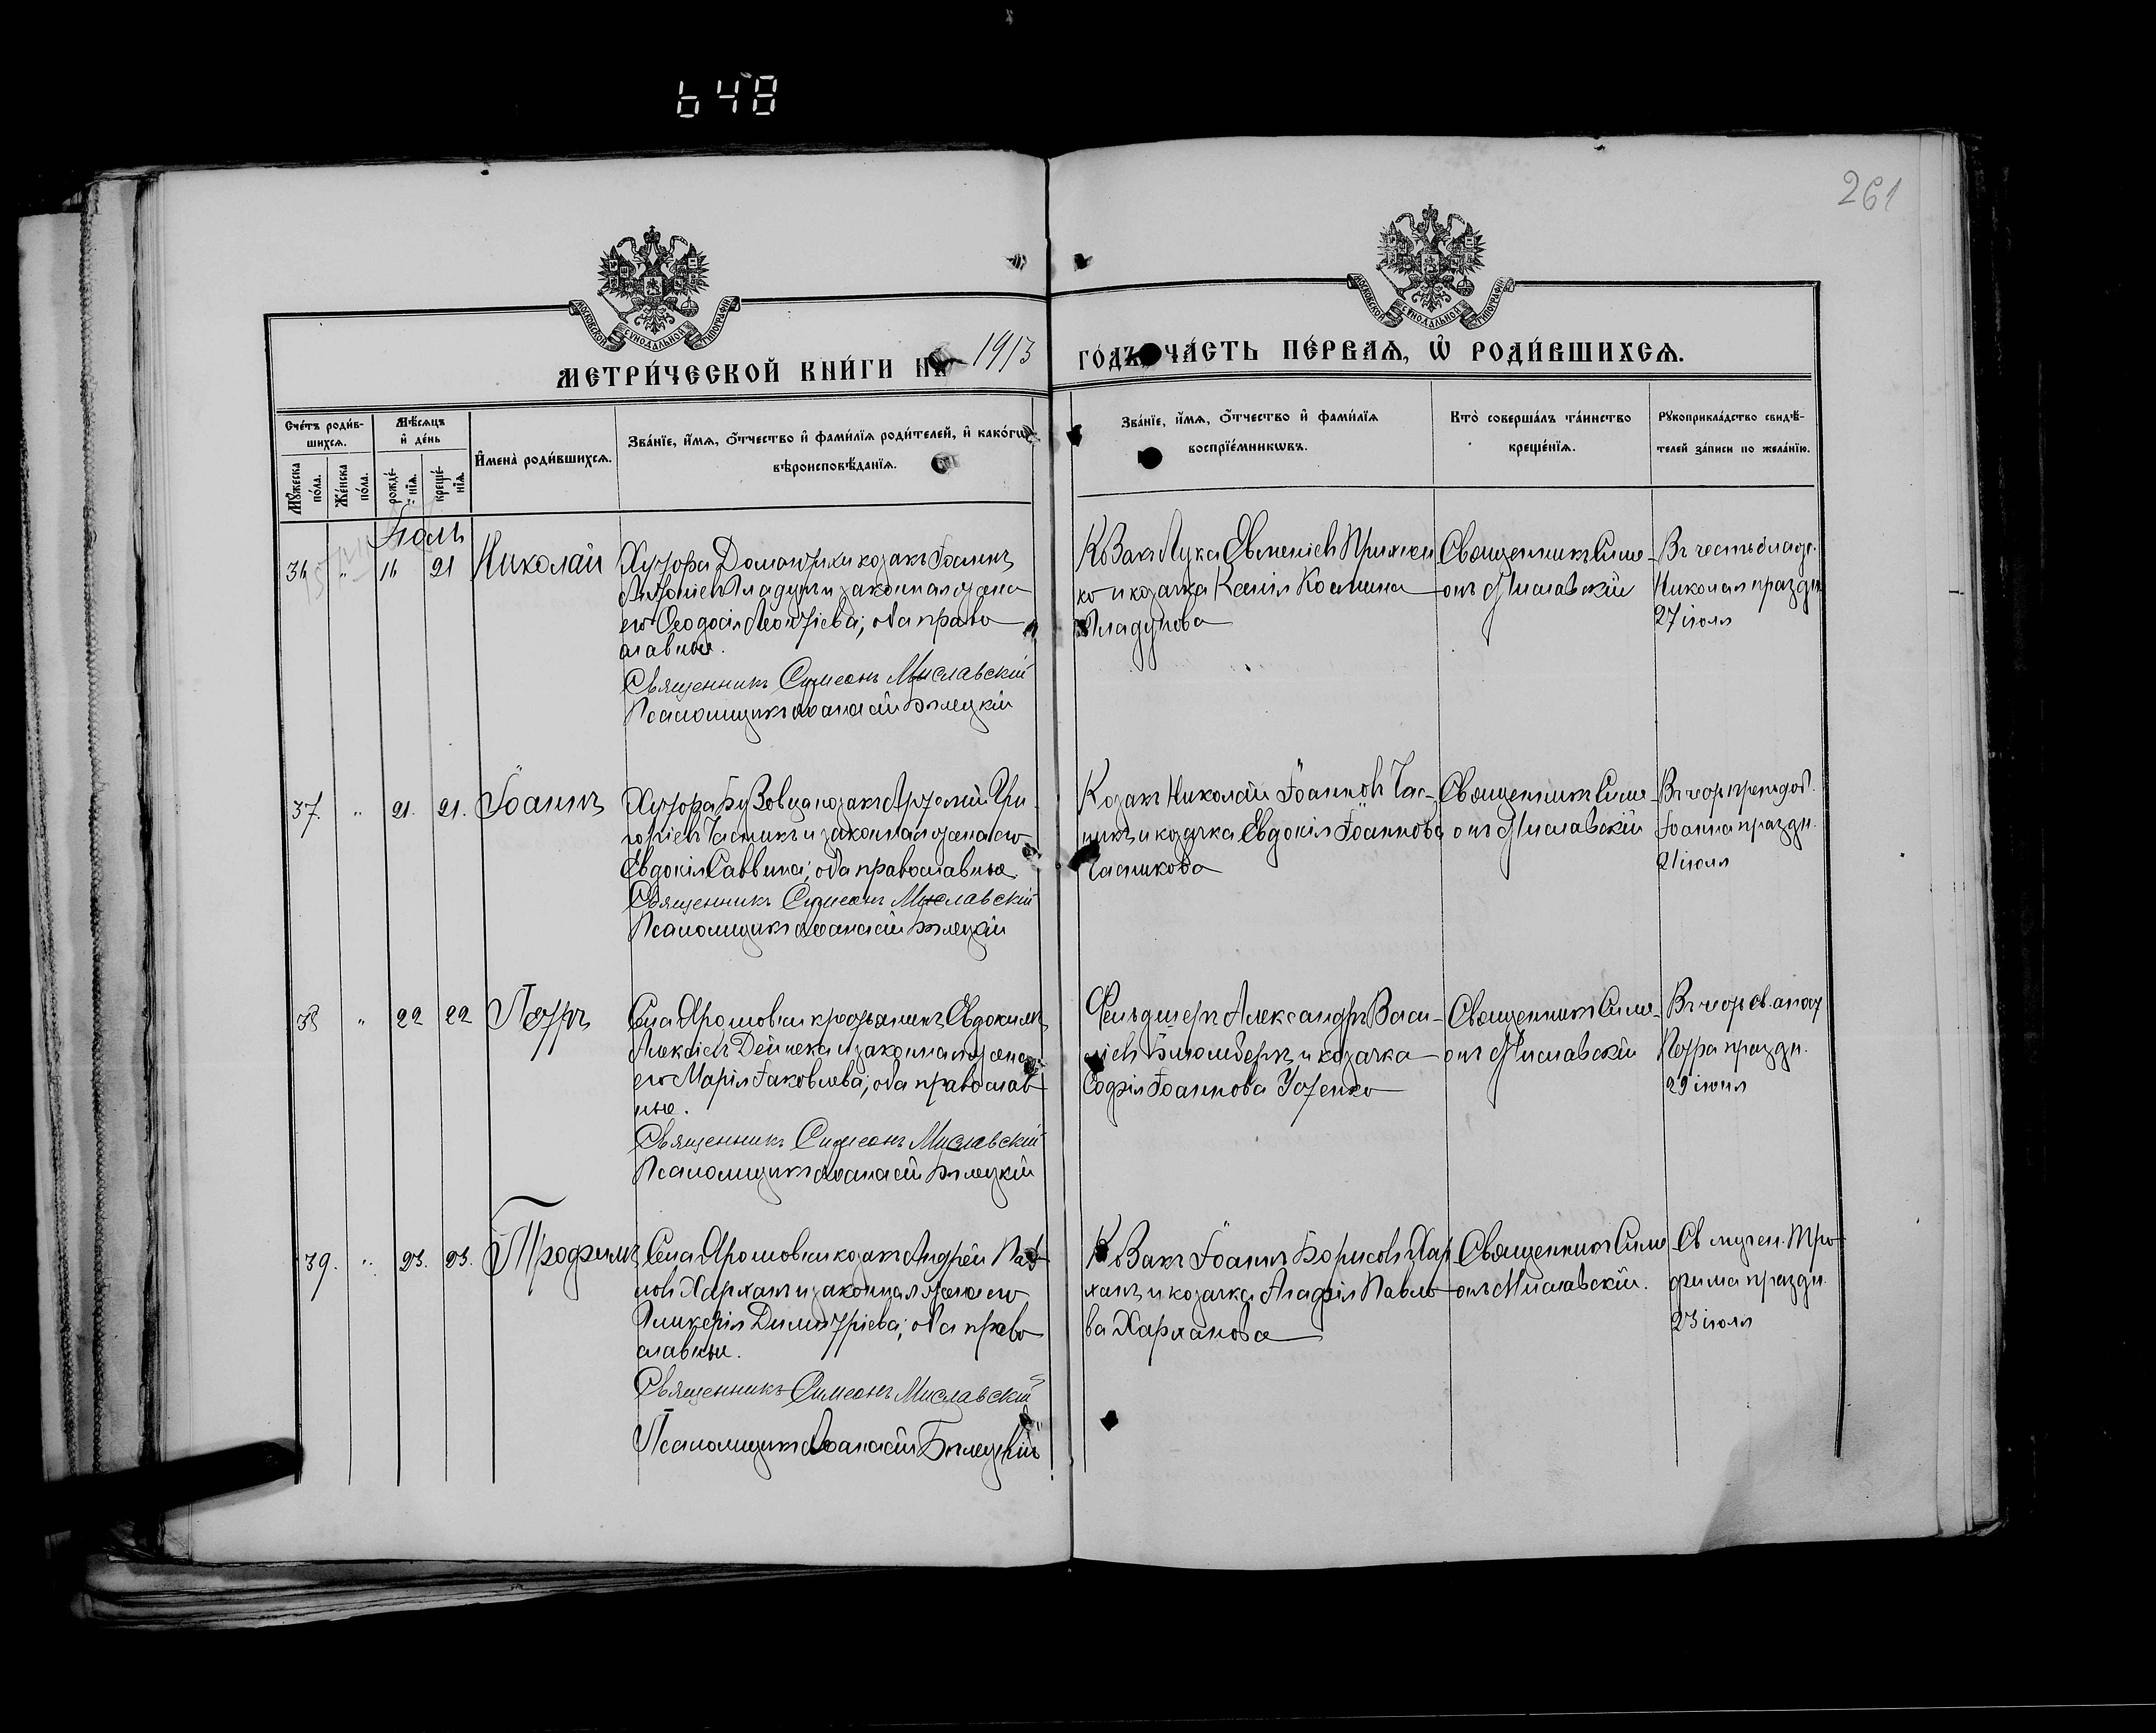 648
261
МОСКОВСКОЙ СѴНОДАЛЬНОЙ ТИПОГРАФІИ
МОСКОВСКОЙ СѴНОДАЛЬНОЙ ТИПОГРАФІИ
МЕТРИ́ЧЕСКОЙ КНИ́ГИ НА 1913
ГО́ДЪ ЧА́СТЬ ПЕ́РВАЯ, Ѡ РОДИ́ВШИХСЯ.
Сче́тъ роди́в-
шихся.
Мꙋ́жеска по́ла.
Же́нска по́ла.
Мѣ́сяцъ
и҆ де́нь
рожде́-
нїя.
креще́-
нїя.
И҆мена̀ роди́вшихся.
Зва́нїе, и҆́мя, ѻ҆́тчество и҆ фами́лїя роди́телей, и҆ како́гѡ
вѣроисповѣ́данїя.
Зва́нїе, и҆́мя, ѻ҆́тчество и҆ фами́лїя
воспрїе́мникѡвъ.
Кто̀ соверша́лъ та́инство
креще́нїя.
Рꙋкоприкла́дство свидѣ́-
телей за́писи по жела́нїю.
Іюль
36 " 16 21 Николай
Хутора козакъ Іоаннъ
и законная жена
его Ѳеодосія Леонтіева; оба право
славные.
Священникъ Симеонъ Миславскій
Псаломщикъ Аѳанасій Бѣлецкій
Козакъ Лука
ко и козачка Ксенія Космина
Священникъ Симе-
онъ Миславскій
Въ честь
Николая праздн.
27 іюля
37. " 21. 21. Іоаннъ
Хутора козакъ Артемій Гри-
горіевъ Часникъ и законная жена его
Евдокія Саввина; оба православные.
Священникъ Симеонъ Миславскій
Псаломщикъ Аѳанасій Бѣлецкій
Козакъ Николай Іоанновъ Час-
никъ и козачка Евдокія Іоаннова
Часникова
Священникъ Симе-
онъ Миславскій
Въ чес. преподоб.
Іоанна праздн.
21 іюля
38 " 22 22 Петръ
Села Ярошовки крестьянинъ Евдокимъ
Алексіевъ Дейнека и законная жена
его Марія Іаковлева; оба православ
ные.
Священникъ Симеонъ Миславскій
Псаломщикъ Аѳанасій Бѣлецкій
Фельдшеръ Александръ Васи-
ліевъ и козачка
Софія Іоаннова Усенко
Священникъ Симе-
онъ Миславскій
Въ чес. св. апост
Петра праздн.
29 іюня
39. " 23. 23. Трофимъ
Села Ярошовки козакъ Андрей Пав
ловъ Харханъ и законная жена его
Гликерія Димитріева; оба право
славные.
Священникъ Симеонъ Миславскій
Псаломщикъ Аѳанасій Бѣлецкій
Козакъ Іоаннъ Борисовъ Хар
ханъ и козачка Агафія Павло
ва Харханова
Священникъ Симе
онъ Миславскій.
Св. мучен. Тро
фима праздн.
23 іюля